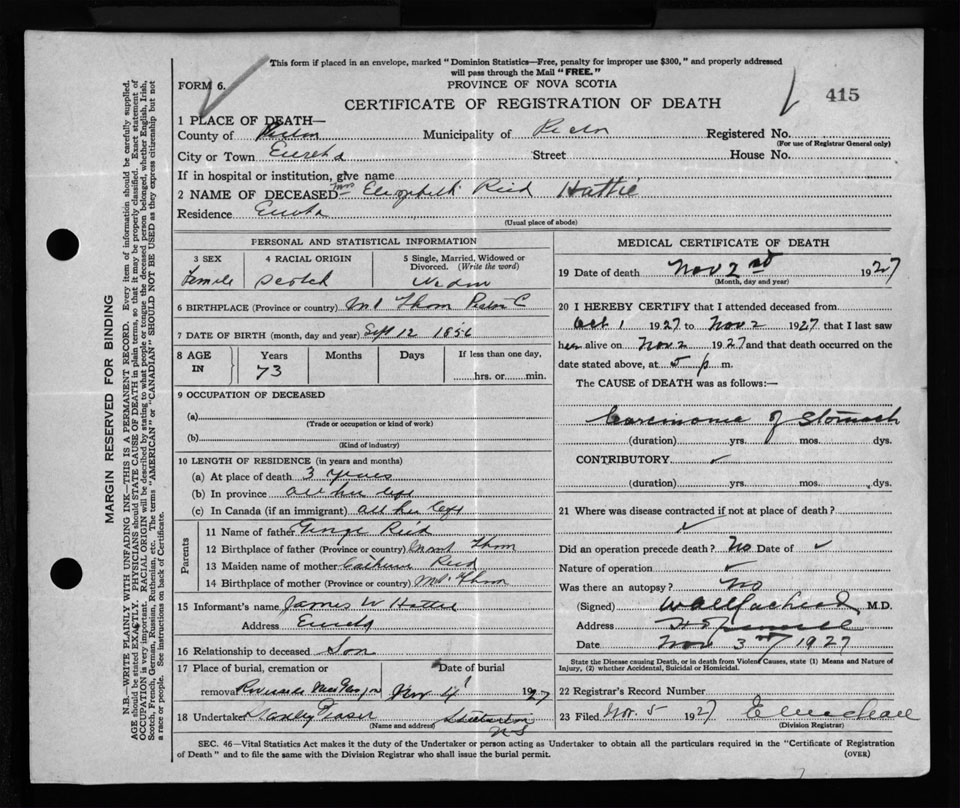 This form if placed in an envelope, marked "Dominion Statistics—Free, penalty for improper use $300," and properly addressed
will pass through the Mail "FREE."
FORM 6.
PROVINCE OF NOVA SCOTIA
415
CERTIFICATE OF REGISTRATION OF DEATH
1 PLACE OF DEATH—
County of Pictou Municipality of Pictou Registered No.
(For use of Registrar General only)
City or Town Eureka Street House No.
If in hospital or institution, give name
2 NAME OF DECEASED Mrs Elizabeth Reid Hattie
Residence Eureka
(Usual place of abode)
PERSONAL AND STATISTICAL INFORMATION
3 SEX 4 RACIAL ORIGIN 5 Single, Married, Widowed or
Divorced. (Write the word)
Female Scotch Widow
6 BIRTHPLACE (Province or country) Mt Thom Pictou C
7 DATE OF BIRTH (month, day and year) Sept 12 1856
8 AGE IN Years Months Days If less than one day,
73 hrs. or min.
9 OCCUPATION OF DECEASED
(a)
(Trade or occupation or kind of work)
(b)
(Kind of industry)
10 LENGTH OF RESIDENCE (in years and months)
(a) At place of death 3 years
(b) In province all her life
(c) In Canada (if an immigrant) all her life
Parents
11 Name of father George Reid
12 Birthplace of father (Province or country) Mount Thom
13 Maiden name of mother Reid
14 Birthplace of mother (Province or country) Mt. Thom
15 Informant's name James W Hattie
Address Eureka
16 Relationship to deceased Son
17 Place of burial, cremation or Date of burial
removal Riverside Nov 4 1927
18 Undertaker Stanley Fraser Stellarton
(Name and address) N S
MEDICAL CERTIFICATE OF DEATH
19 Date of death Nov 2nd 1927
(Month, day and year)
20 I HEREBY CERTIFY that I attended deceased from
Oct 1 1927 to Nov 2 1927 that I last saw
her alive on Nov 2 1927 and that death occurred on the
date stated above, at 5 p m.
The CAUSE OF DEATH was as follows:—
Carcinoma of Stomach
(duration) yrs. mos. dys.
CONTRIBUTORY
(duration) yrs. mos. dys.
21 Where was disease contracted if not at place of death?
Did an operation precede death? No Date of
Nature of operation
Was there an autopsy? No
(Signed) M.D.
Address
Date Nov 3rd 1927
State the Disease causing Death, or in death from Violent Causes, state (1) Means and Nature of
Injury, (2) whether Accidental, Suicidal or Homicidal.
22 Registrar's Record Number
23 Filed Nov. 5 1927
(Division Registrar)
SEC. 46—Vital Statistics Act makes it the duty of the Undertaker or person acting as Undertaker to obtain all the particulars required in the "Certificate of Registration
of Death" and to file the same with the Division Registrar who shall issue the burial permit. (OVER)
MARGIN RESERVED FOR BINDING
N.B.—WRITE PLAINLY WITH UNFADING INK—THIS IS A PERMANENT RECORD. Every item of information should be carefully supplied.
AGE should be stated EXACTLY. PHYSICIANS should STATE CAUSE OF DEATH in plain terms, so that it may be properly classified. Exact statement of
OCCUPATION is very important. RACIAL ORIGIN will be described by stating to what people or tongue the deceased person belonged, whether English, Irish,
Scotch, French, German, Russian, Ruthenian, etc. The terms "AMERICAN" or "CANADIAN" SHOULD NOT BE USED as they express citizenship but not
a race or people. See instructions on back of Certificate.